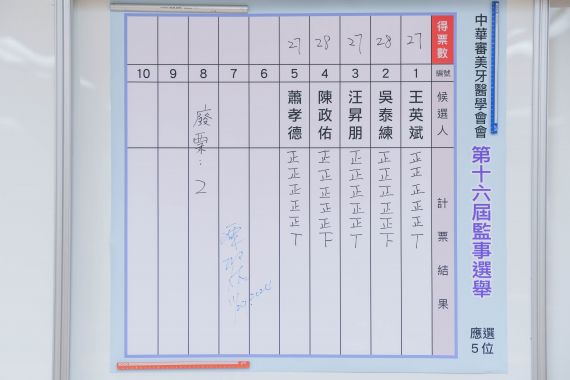 中華審美牙醫學會會
第十六屆監事選舉
應選
5位
得票數
27
28
27
28
27
編號
1
2
3
4
5
6
7
8
9
10
候選人
王英斌
吳泰練
汪昇朋
陳政佑
蕭孝德
計票結果
正正正正正丅
正正正正正下
正正正正正丅
正正正正正下
正正正正正丅
廢票：2